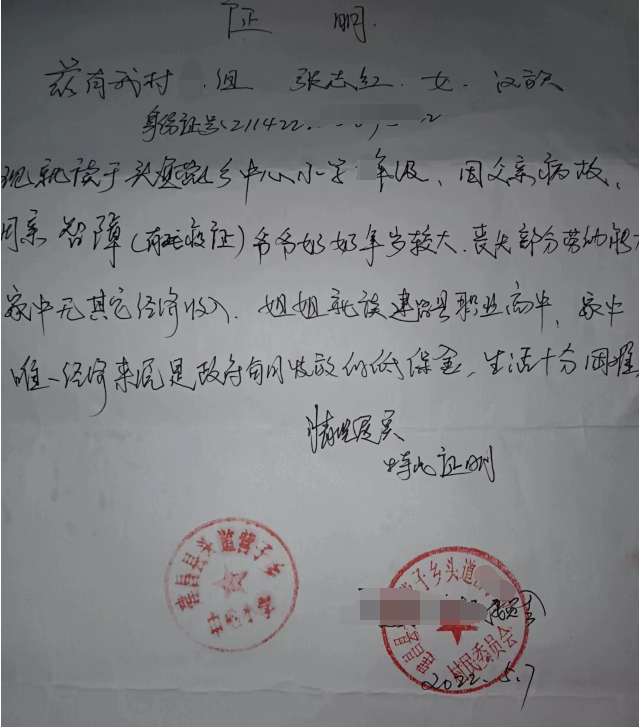 证 明
兹有我村 组 张志红.女.汉族
身份证号211422 2
现就读于头道营子乡中心小学 年级、因父亲病故、
母亲智障(有残疾证)爷爷奶奶年岁较大.丧失部分劳动能力
家中无其它经济收入.姐姐就读建昌县职业高中,家中
唯一经济来源是政府每月发放的低保金,生活十分困难
情况属实
特此证明
建昌县头道营子乡
中心小学
建昌县头道营子乡头道
村民委员会
委员会
2022.5.7